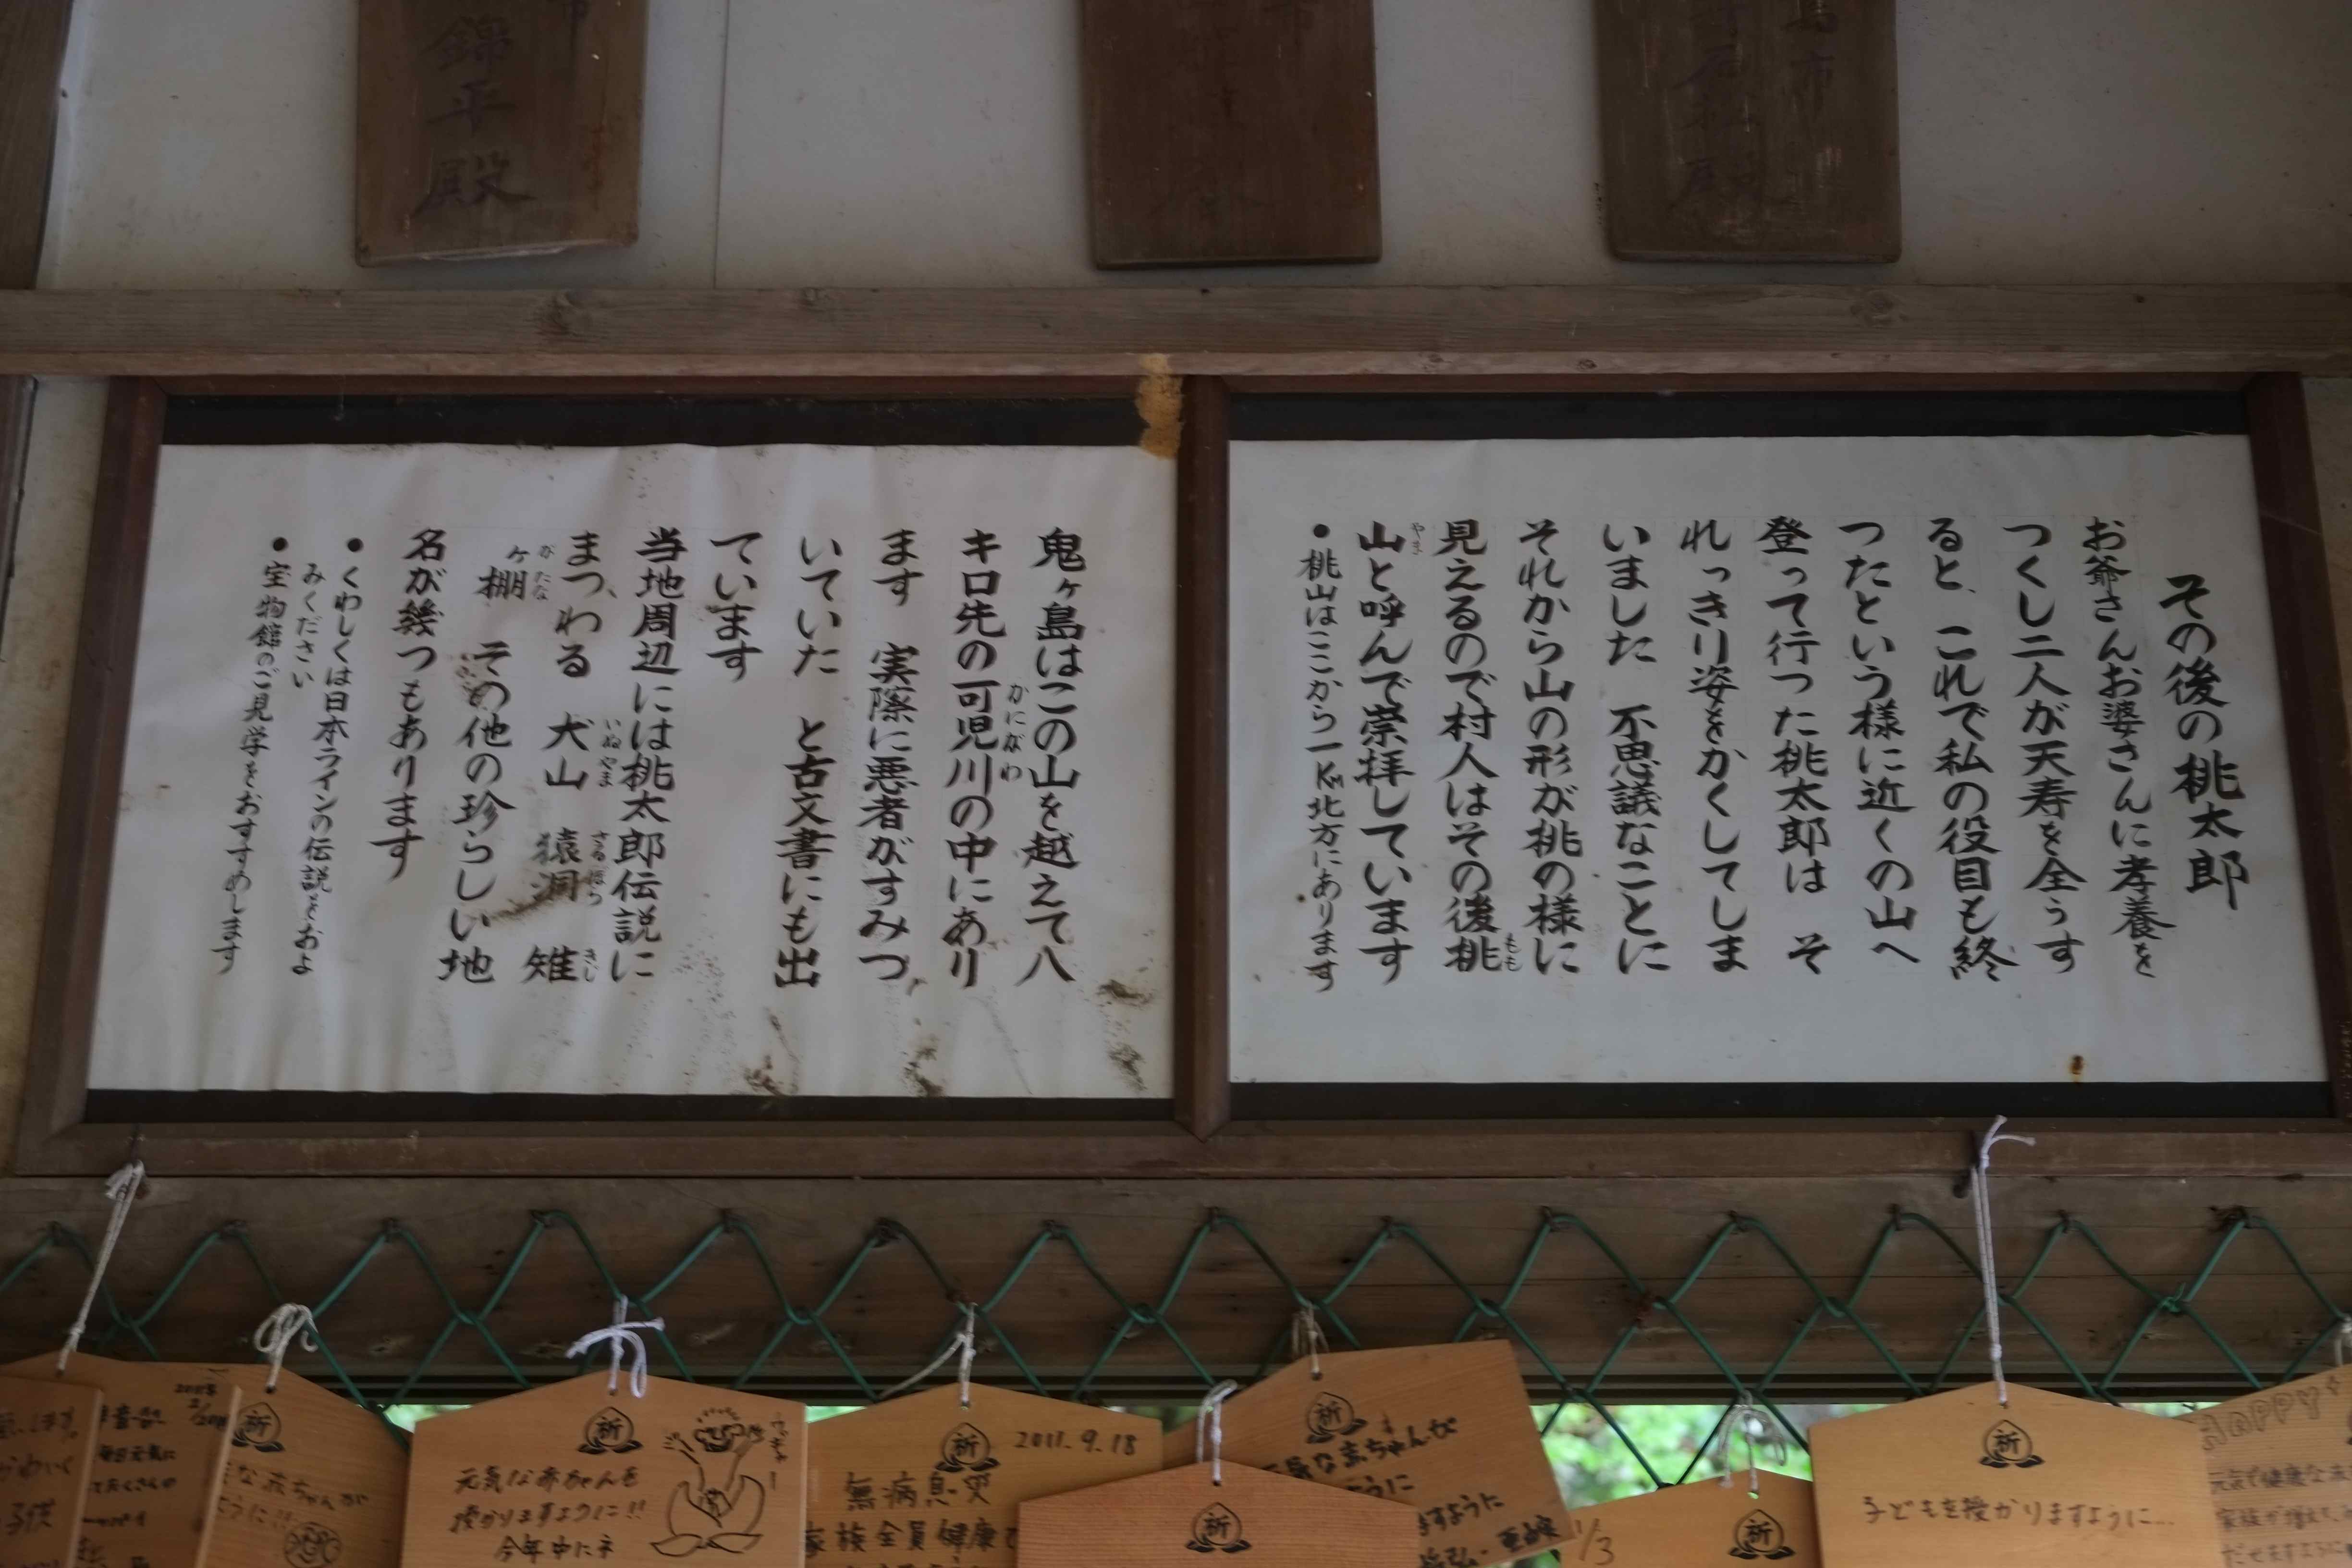 錦平殿
市
その後の桃太郎
お爺さんお婆さんに孝養を
つくし二人が天寿を全うす
ると、これで私の役目も終
つたという様に近くの山へ
登って行った桃太郎は そ
れっきり姿をかくしてしま
いました 不思議なことに
それから山の形が桃の様に
見えるので村人はその後桃
もも
山と呼んで崇拝しています
やま
●桃山はここから一Km北方にあります
鬼ヶ島はこの山を越えて八
キロ先の可児川の中にあり
かにがわ
ます 実際に悪者がすみつ
いていた と古文書にも出
ています
当地周辺には桃太郎伝説に
まつわる 犬山 猿洞 雉
いぬやま さるぼら きじ
ヶ棚 その他の珍らしい地
がたな
名が幾つもあります
●くわしくは日本ラインの伝説をおよ
みください
●宝物館のご見学をおすすめします
毎日元気に
子供
祈
赤ちゃんが
ように!!
祈
元気な赤ちゃんを
授かりますように!!
今年中にネ
祈
2011.9.18
無病息災
家族全員健康で
祈
祈
元気な赤ちゃんが
ように
ますように
祈
1/3
祈
子どもを授かりますように...
Happy